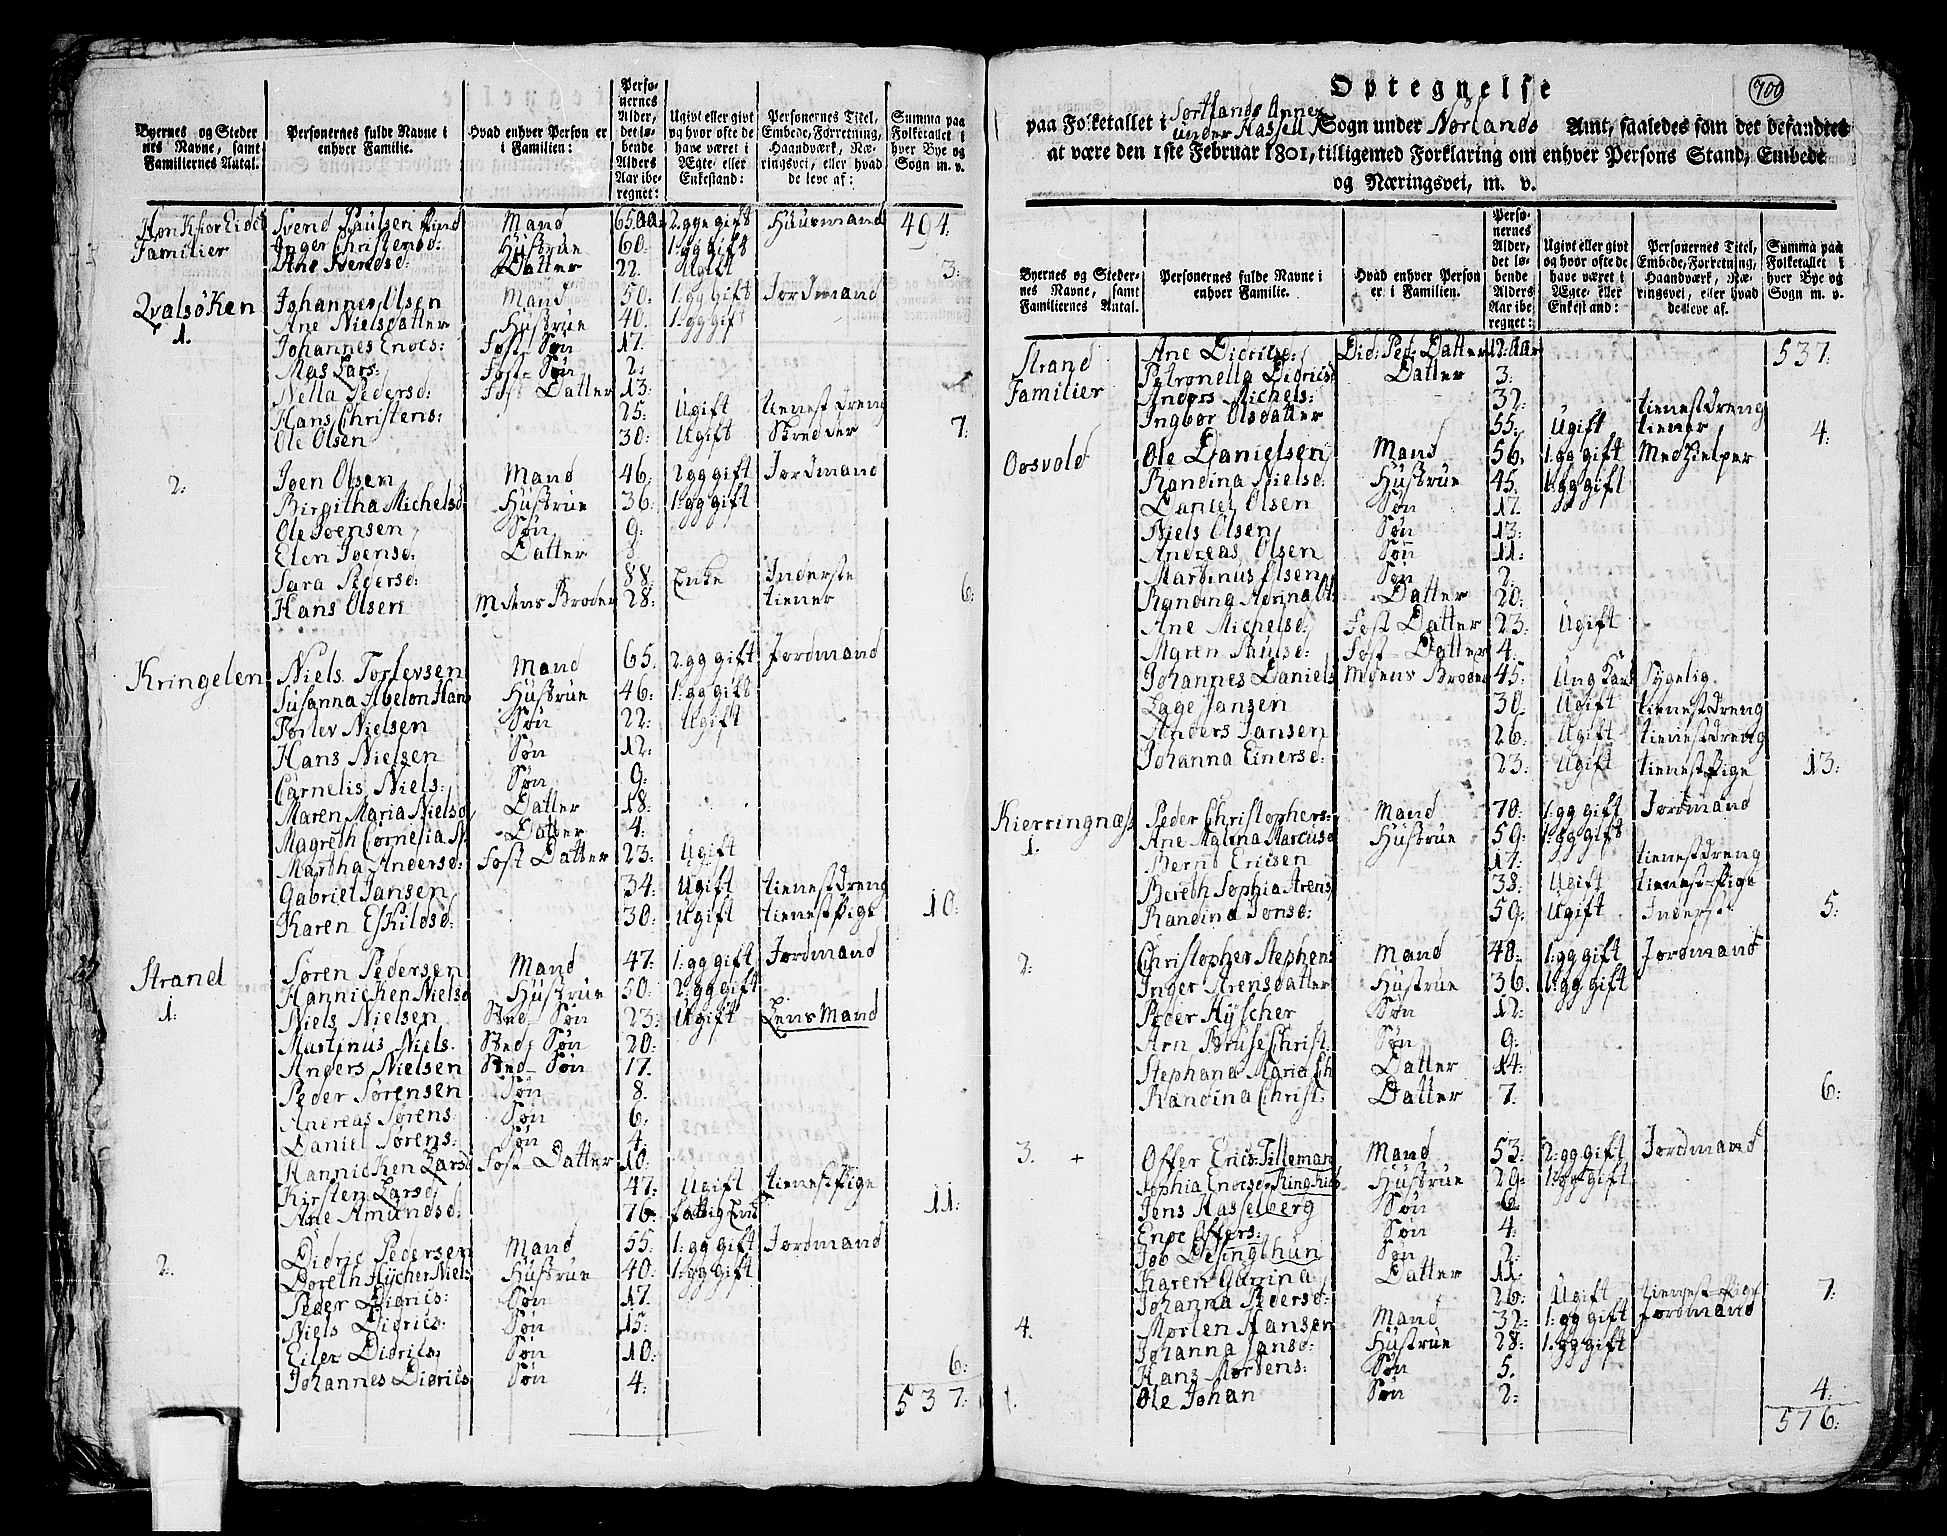 Byernes og Steder
nes Navne, samt
Familiernes Antal.
Personernes fulde Navne i
enhver Familie.
Hvad enhver Person er
i Familien:
Perso-
nernes
Alder,
det lø-
bende
Alders
Aar ibe-
regnet:
Ugivt eller givt
og hvor ofte de
have været i
Ægte- eller
Enkestand:
Personernes Titel,
Embede, Forretning,
Haandværk, Næ-
ringsvei, eller hvad
de leve af:
Summa paa
Folketallet i
hver Bye og
Sogn m. v.
Svend Paulsen Mand 65 Aar 2 gge gift Huusmand 494.
Familier Inger Christensd: Hustrue 60: 1: gg gift
Ane Svendsd: Datter 22. Ugift 3:
Qvalsöken Johannes Olsen Mand 50: 1: gg gift Jordmand
1. Ane Nielsdatter Hustrue 40. 1: gg gift
Johannes Enocs: Fost: Søn 17.
Mas Lars: Fost- Søn 2:
Nella Pedersd: Fost Datter 13:
Hans Christens: 25: Ugift tienest Dreng
Ole Olsen 30: Ugift Skredder 7:
2: Joen Olsen Mand 46: 2 gg gift Jordmand
Birgitha Michelsd Hustrue 36: 1: gg gift
Ole Joensen Søn 9:
Elen Joensd: Datter 8
Sara Pedersd: 88: Enke Inderste
Hans Olsen Mdens Broder 28: tiener 6:
Kringelen Niels Torlevsen Mand 65. 2: gg gift Jordmand
Susanna Abelon Hans Hustrue 46: 1: gg gift
Torlev Nielsen Søn 22: Ugift
Hans Nielsen Søn 12:
Carnelis Niels: Søn 9:
Maren Maria Nielsd Datter 18:
Magreth Cornelia N. Datter 4:
Martha Andersd: Fost Datter 23: Ugift
Gabriel Jansen 34: Ugift tienest Dreng
Karen Eskildsd: 30: Ugift tienest Pige 10:
Strand Søren Pedersen Mand 47: 1: gg gift Jordmand
1: Hannicken Nielsd Hustrue 50: 2: gg gift
Niels Nielsen Sted- Søn 23: Ugift Lens Mand
Martinus Niels. Sted- Søn 20:
Anders Nielsen Sted- Søn 17.
Peder Sørensen Søn 8.
Andreas Sørens Søn 6.
Daniel Sørens: Søn 4:
Hannicken Larsd Fost- Datter 10:
Kirsten Larsd 47: Ugift tienest Pige
Ane Amundsd: 76: fattig Enke 11:
2: Didric Pedersen Mand 55: 1: gg gift Jordmand
Doreth Hÿcher Niels Hustrue 40: 1: gg gift
Peder Didrics: Søn 17.
Niels Didrics: Søn 15:
Eiler Didrics: Søn 10:
Johannes Didrics Søn 4: 6:
537:
Optegnelse
700
paa Folketallet i Sortlands Annex under Hassell Sogn under Norlands Amt, saaledes som det befandtes
at være den 1ste Februar 1801, tilligemed Forklaring om enhver Persons Stand, Embede
og Næringsvei, m. v.
Byernes og Steder-
nes Navne, samt
Familiernes Antal.
Personernes fulde Navne i
enhver Familie.
Hvad enhver Person
er i Familien.
Perso-
nernes
Alder,
det lø-
bende
Alders
Aar ibe-
regnet:
Ugivt eller givt
og hvor ofte de
have været i
Ægte- eller
Enkestand:
Personernes Titel,
Embede, Forretning,
Haandværk, Næ-
ringsvei, eller hvad
de leve af.
Summa paa
Folketallet i
hver Bye og
Sogn m. v.
Strand Ane Didricsd: Did: Ped: Datter 12: Aar 537:
Familier Petronella Didricsd Datter 3:
Anders Michels: 32: tienest Dreng
Ingbor Olsdatter 55: Ugift tiener 4:
Oosvold Ole Danielsen Mand 56. 1: gg gift Medhielper
Randina Nielsd: Hustrue 45. 1: gg gift
Daniel Olsen Søn 17
Niels Olsen Søn 13:
Andreas Olsen Søn 11:
Martinus Olsen Søn 2:
Randina Marina Ol: Datter 20:
Ane Michelsd: Fost Datter 23: Ugift
Maren Paulsd: Fost- Datter 4:
Johannes Daniels Mdens Broder 45: Ung Karl Sygelig
Lage Jansen 30: Ugift tienest Dreng
Anders Jansen 26: Ugift tienest Dreng
Johanna Einersd: 23: Ugift tienest Pige 13:
Kierringnæss Peder Christophers: Mand 70: 1: gg gift Jordmand
1. Ane Malena Marcusd Hustrue 59: 1: gg gift
Bernt Ericsen 17: tienest Dreng
Bereth Sophia Arens 38: Ugift tienest Pige
Randina Jonsd: 59: Ugift Inderst 5:
2: Christopher Stephens Mand 40: 1: gg gift Jordmand
Inger Arensdatter Hustrue 36. 1: gg gift
Peder Hÿscher Søn 12:
Arn Bruse Christ. Søn 9:
Stephana Maria Ch Datter 14:
Randina Christ: Datter 7. 6:
3. + Offer Erics: Tilleman Mand 53: 2: gg gift Jordmand
Sophia Enocsd Ringkiøb Hustrue 29: 1: gg gift
Jens Hasselberg Søn 6
Enoc Offers: Søn 4:
Job Desingthun Søn 2:
Karen Gurina Datter 11:
Johanna Pedersd: 26: Ugift tienest Pige 7:
4. Morten Hansen Mand 32: 1: gg gift Jordmand
Johanna Jansd: Hustrue 28: 1: gg gift
Hans Mortens: Søn 5.
Ole Johan Søn 2: 4:
576: